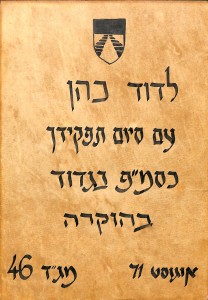 לדוד כהן
עם סיום תפקידך
כסמ"פ בגדוד
בהוקרה
אוגוסט 71 מג"ד 46